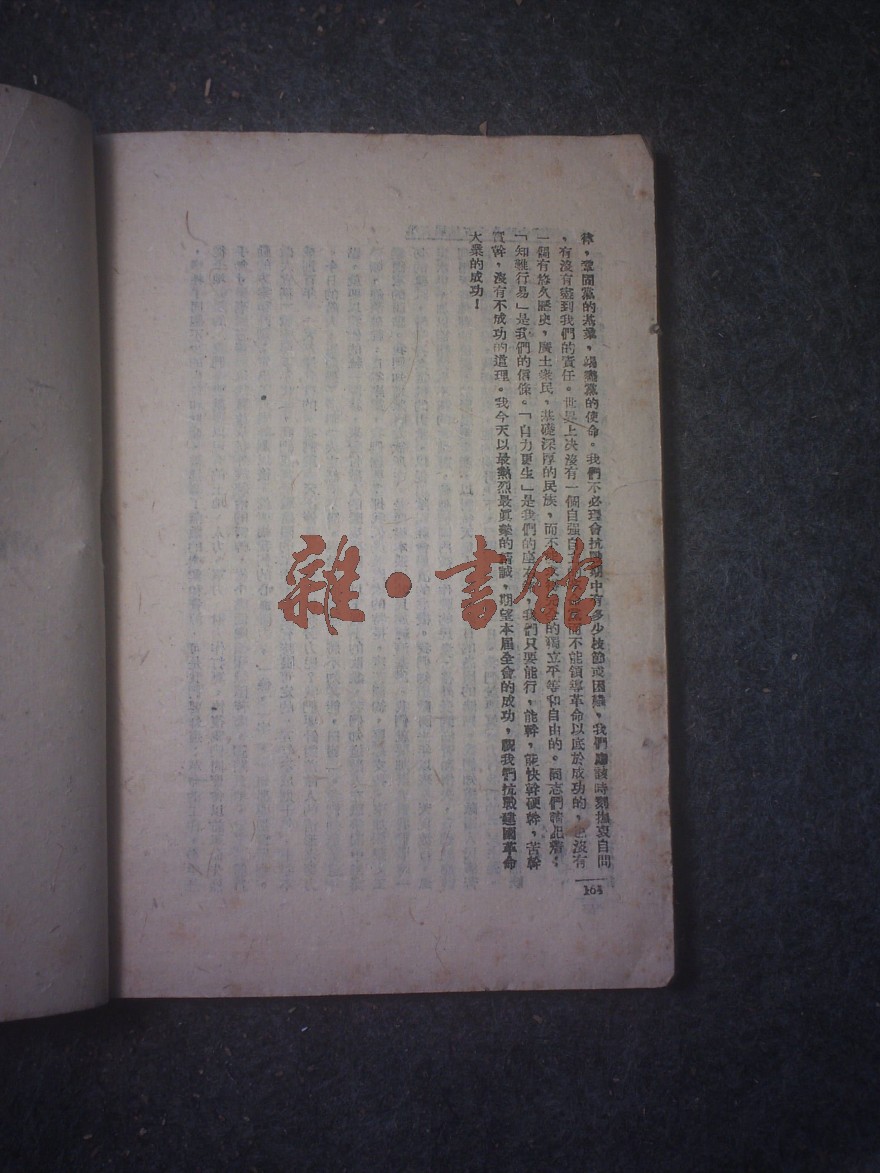 鞏固黨的基業，竭盡黨的使命。我們不必理會抗戰期中有多少枝節或困難，我們應該時刻撫衷自問
，有沒有盡到我們的責任。世界上決沒有一個自强自立的 而不能領導革命以底於成功的，也沒有
一個有悠久歷史，廣土衆民，基礎深厚的民族，而不能 的獨立平等和自由的。同志們請記着：
「知難行易」是我們的信條。「自力更生」是我們的座右銘，我們只要能行，能幹，能快幹硬幹，苦幹
實幹，沒有不成功的道理。我今天以最熱烈最眞摯的精誠，期望本屆全會的成功，祝我們抗戰建國革命
大業的成功！
164
雜·書館